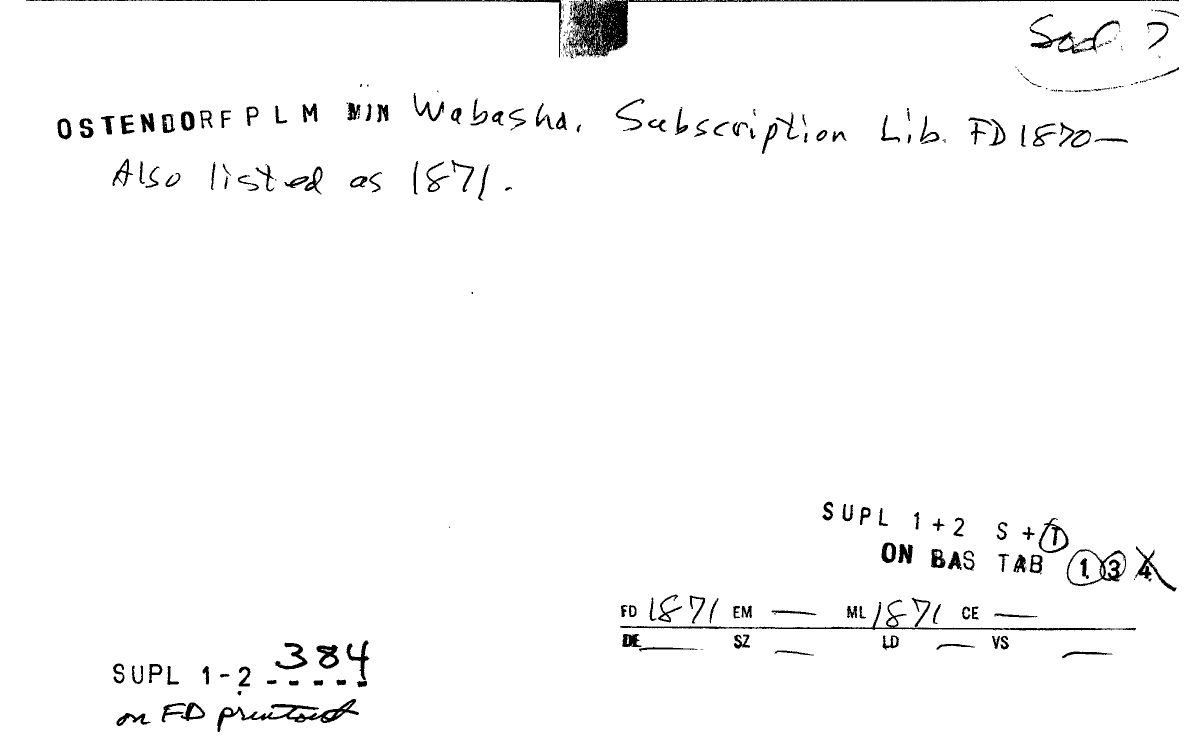 OSTENDORF P L M MIN Wabasha. Subscription Lib. FD 1870—
Also listed as 1871.
SUPL 1+2 S+T
ON BAS TAB 1 3 4
FD 1871 EM — ML 1871 CE —
DE SZ — LD — VS —
SUPL 1-2 384
on FD printout